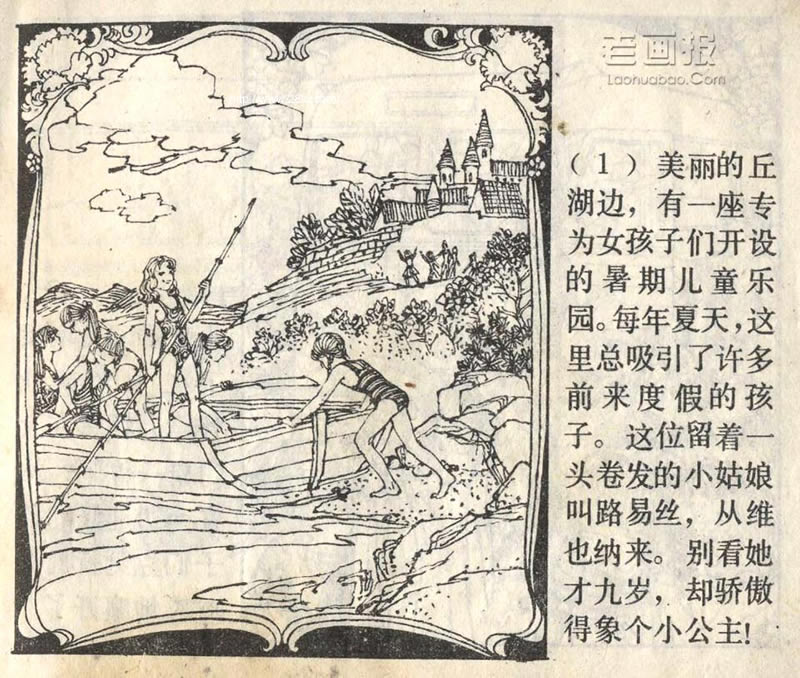 老画报
Laohuabao.Com
（1）美丽的丘
湖边，有一座专
为女孩子们开设
的暑期儿童乐
园。每年夏天，这
里总吸引了许多
前来度假的孩
子。这位留着一
头卷发的小姑娘
叫路易丝，从维
也纳来。别看她
才九岁，却骄傲
得象个小公主！